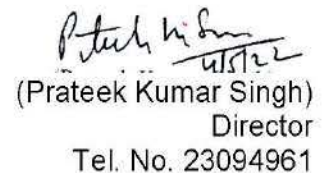 4/5/22
(Prateek Kumar Singh)
Director
Tel. No. 23094961